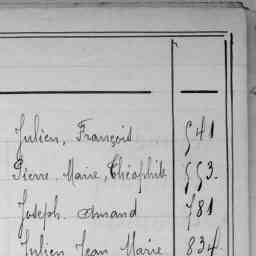 Julien, François 541
Pierre, Marie, Théophile 553.
Joseph. Amand 781
Julien Jean Marie 834